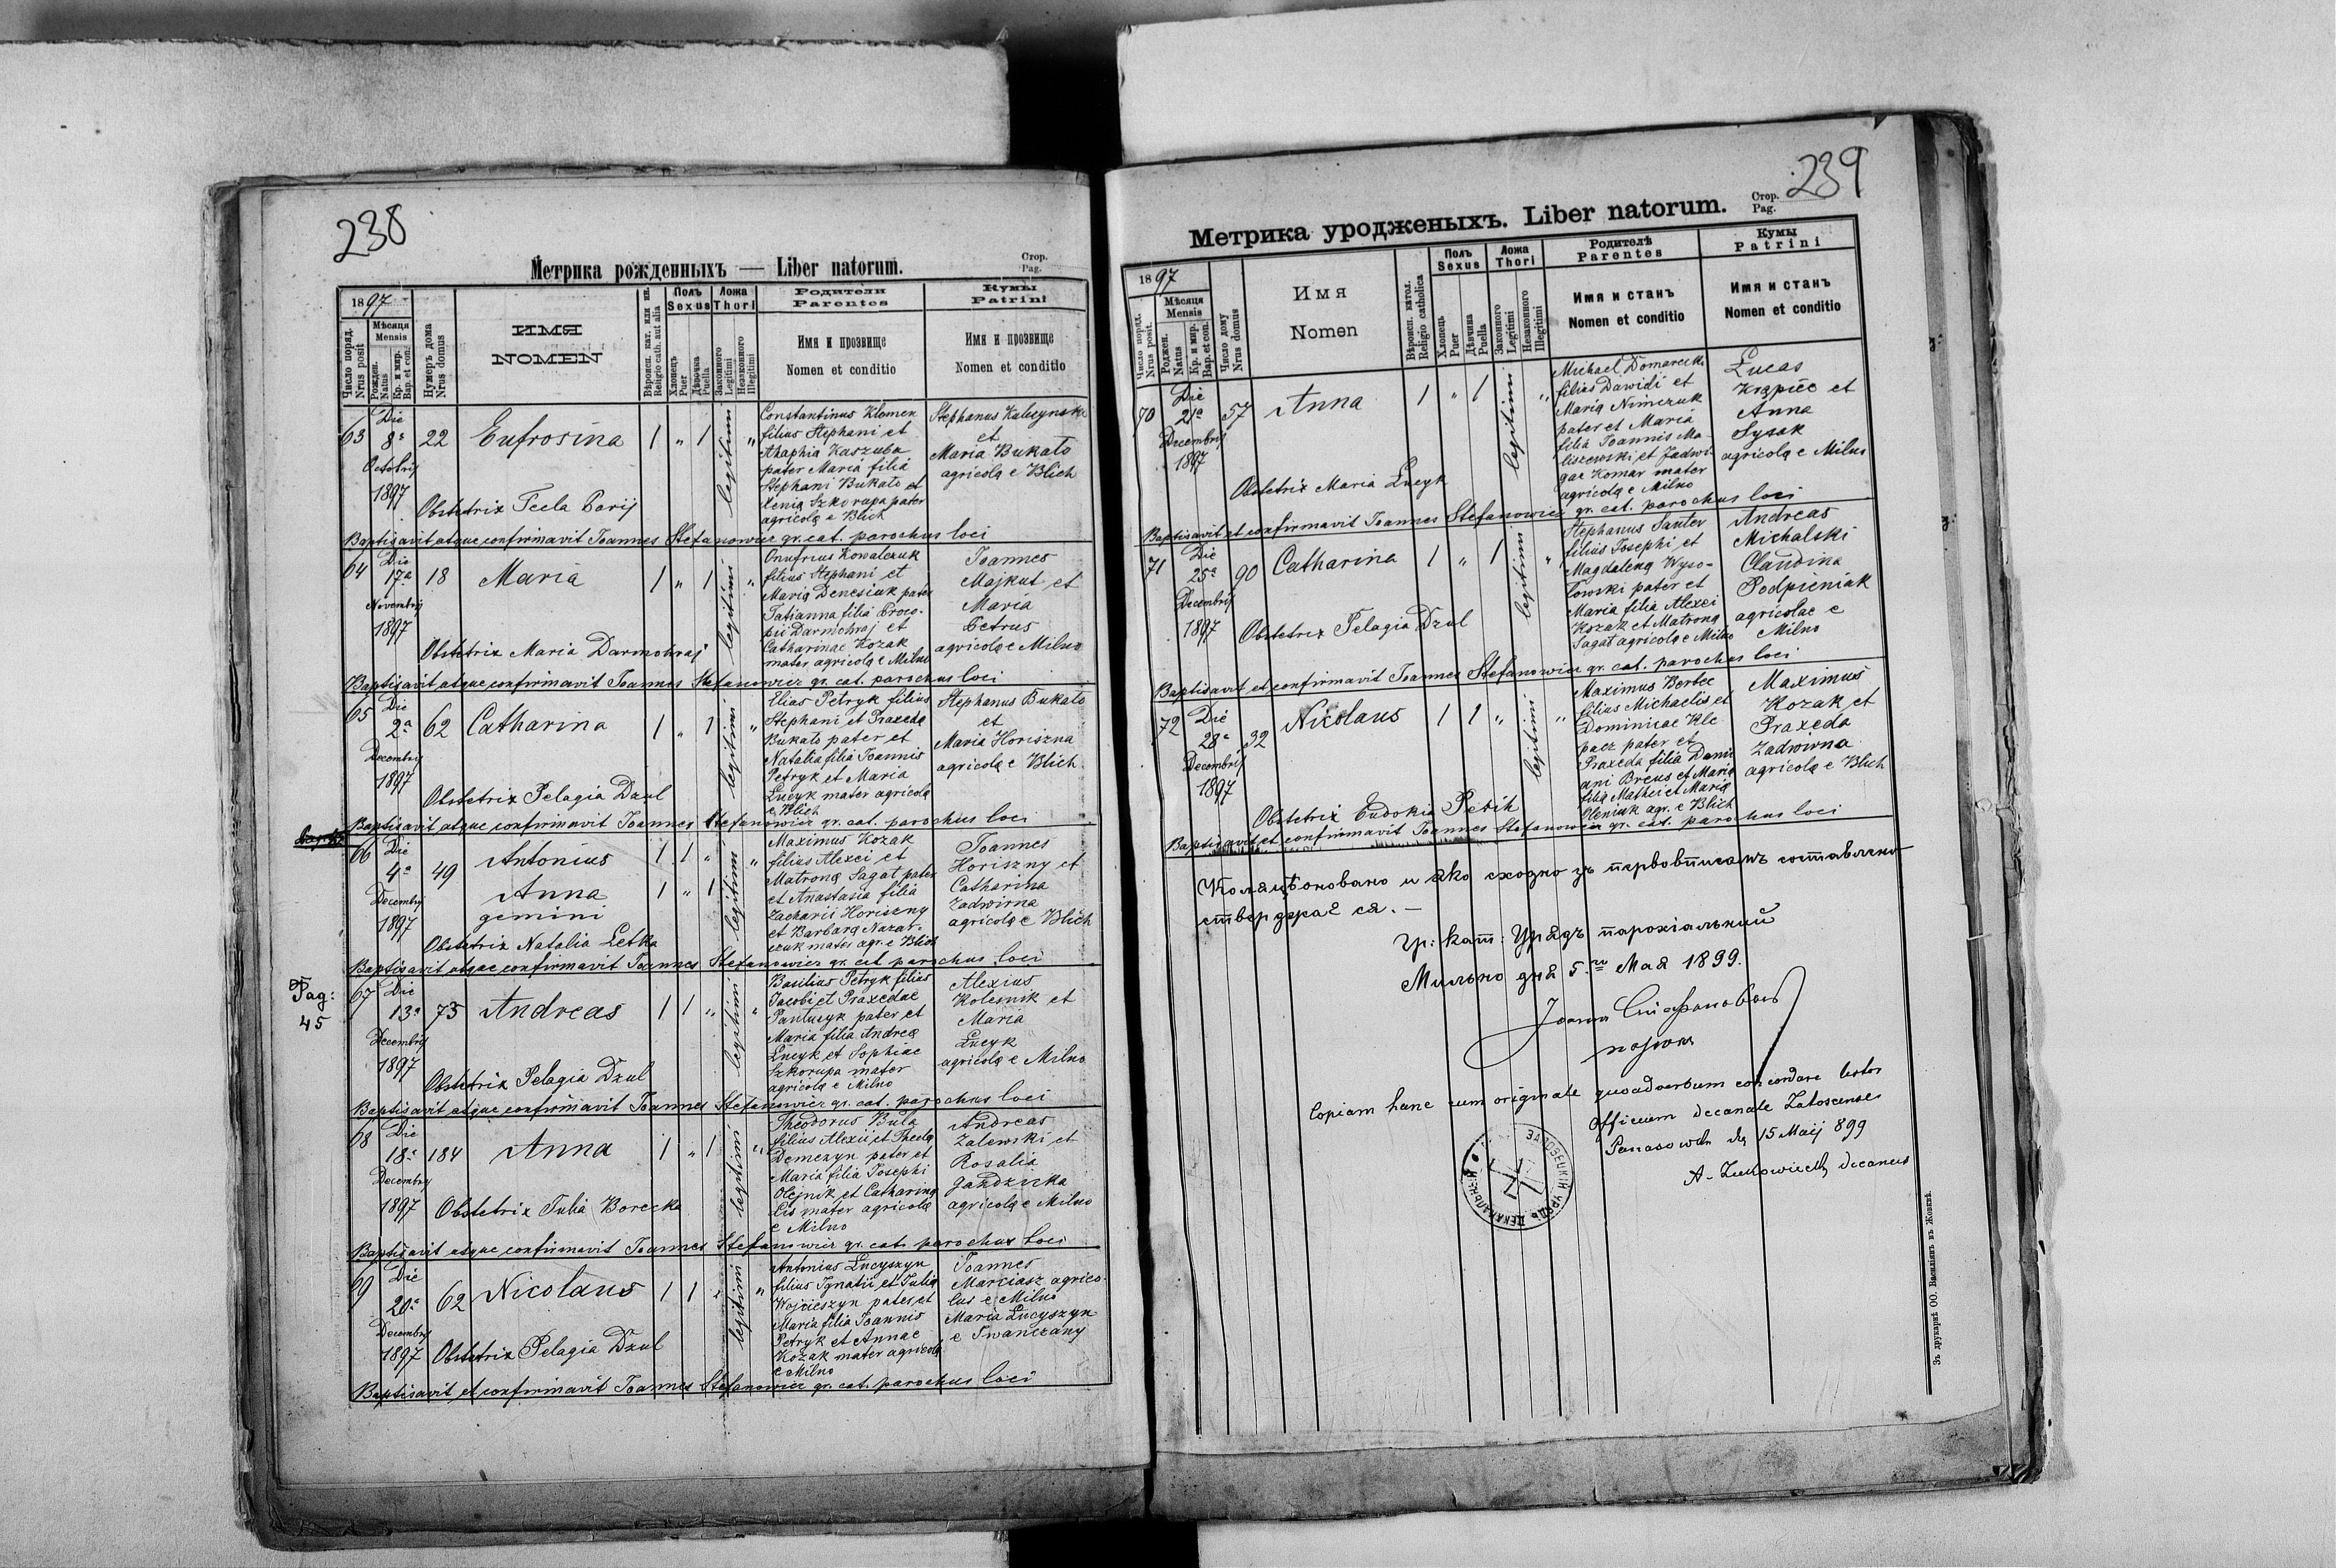 238
Метрика рожденныхъ — Liber natorum.
Стор.
Pag.
1897
Число поряд.
Nrus posit
Мѣсяця
Mensis
Рожден.
Natus
Кр. и мир.
Bap. et con.
Нумеръ дома
Nrus domus
ИМЯ
NOMEN
Вѣроисп. кат. или ин.
Religio cath. aut alia
Полъ
Sexus
Хлопець
Puer
Дѣвочка
Puella
Ложа
Thori
Законного
Legitimi
Незаконного
Illegitimi
Родители
Parentes
Имя и прозвище
Nomen et conditio
Кумы
Patrini
Имя и прозвище
Nomen et conditio
63 Die 8a Octobrij 1897 22 Eufrosina 1 " 1 legitimi "
Constantinus Klemen
filius Stephani et
Ahaphia Kaszuba
pater Maria filia
Stephani Bukato et
Xenia Szkorupa pater
agricolą e Blich
Stephanus Kaluzynski
et
Maria Bukato
agricolą e Blich
Obstetrix Tecla Parij
Baptisavit atque confirmavit Joannes Stefanowicz gr. cat. parochus loci
64 Die 17a Novembrij 1897 18 Maria 1 " 1 legitimi "
Onufrius Kowalczuk
filius Stephani et
Maria Denesiuk pater
Tatianna filia Proco-
pii Darmohraj et
Catharinae Kozak
mater agricolą e Milno
Joannes
Majkut et
Maria
Petrus
agricolą e Milno
Obstetrix Maria Darmohraj
Baptisavit atque confirmavit Joannes Stefanowicz gr. cat. parochus loci
65 Die 2a Decembrij 1897 62 Catharina 1 " 1 legitimi "
Elias Petryk filius
Stephani et Praxeda
Bukato pater et
Natalia filia Joannis
Petryk et Maria
Łucyk mater agricolą
e Blich
Stephanus Bukato
et
Maria Horiszna
agricolą e Blich
Obstetrix Pelagia Dzul
Baptisavit atque confirmavit Joannes Stefanowicz gr. cat. parochus loci
66 Die 4a Decembrij 1897 49 Antonius 1 1 " legitimi "
Anna 1 " 1
gemini
Maximus Kozak
filius Alexei et
Matrona Sagat pater
et Anastasia filia
Zacharii Horiszny
et Barbara Nazar-
czuk mater agr. e Blich
Joannes
Horiszny et
Catharina
Zadwirna
agricolą e Blich
Obstetrix Natalia Letka
Baptisavit atque confirmavit Joannes Stefanowicz gr. cat. parochus loci
Pag:
45
67 Die 13a Decembrij 1897 73 Andreas 1 1 " legitimi "
Basilius Petryk filius
Jacobi et Praxedae
Pantuzyk pater et
Maria filia Andreą
Łucyk et Sophiae
Szkorupa mater
agricolą e Milno
Alexius
Kolesnik et
Maria
Łucyk
agricolą e Milno
Obstetrix Pelagia Dzul
Baptisavit atque confirmavit Joannes Stefanowicz gr. cat. parochus loci
68 Die 18a Decembrij 1897 184 Anna 1 " 1 legitimi "
Theodorus Bula
filius Alexii et Thecla
Demczyn pater et
Maria filia Josephi
Olejnik et Catharina
Lis mater agricolą
e Milno
Andreas
Zalewski et
Rosalia
Gandzirka
agricolą e Milno
Obstetrix Julia Borecka
Baptisavit atque confirmavit Joannes Stefanowicz gr. cat. parochus loci
69 Die 20a Decembrij 1897 62 Nicolaus 1 1 " legitimi "
Antonius Łucyszyn
filius Ignatii et Julia
Wojcieszyn pater et
Maria filia Joannis
Petryk et Annae
Kozak mater agricolą
e Milno
Joannes
Marciasz agrico-
lus e Milno
Maria Łucyszyn
e Iwanczany
Obstetrix Pelagia Dzul
Baptisavit et confirmavit Joannes Stefanowicz gr. cat. parochus loci
239
Метрика уродженыхъ. Liber natorum.
Стор.
Pag.
1897
Число поряд.
Nrus posit.
Мѣсяця
Mensis
Рожден.
Natus
Кр. и мир.
Bap. et con.
Число дому
Nrus domus
Имя
Nomen
Вѣроисп. катол.
Religio catholica
Полъ
Sexus
Хлопець
Puer
Дѣвчина
Puella
Ложа
Thori
Законного
Legitimi
Незаконного
Illegitimi
Родителѣ
Parentes
Имя и станъ
Nomen et conditio
Кумы
Patrini
Имя и станъ
Nomen et conditio
70 Die 21a Decembrij 1897 57 Anna 1 " 1 legitimi "
Michael Domarecki
filius Dawidi et
Maria Nimczuk
pater et Maria
filia Joannis Ma-
liszewski et Jadwi-
gae Komar mater
agricolą e Milno
Lucas
Krąpiec et
Anna
Sysak
agricolą e Milno
Obstetrix Maria Łucyk
Baptisavit et confirmavit Joannes Stefanowicz gr. cat. parochus loci
71 Die 25a Decembrij 1897 90 Catharina 1 " 1 legitimi "
Stephanus Santer
filius Josephi et
Magdalena Wyso-
towski pater et
Maria filia Alexei
Kozak et Matrona
Sagat agricolą e Milno
Andreas
Michalski
Claudina
Podpieniak
agricolae e
Milno
Obstetrix Pelagia Dzul
Baptisavit et confirmavit Joannes Stefanowicz gr. cat. parochus loci
72 Die 28a Decembrij 1897 32 Nicolaus 1 1 " legitimi "
Maximus Bertec
filius Michaelis et
Dominicae Kle-
pacz pater et
Praxeda filia Dami-
ani Breus et Maria
filia Mathei et Maria
Oleniuk agr. e Blich
Maximus
Kozak et
Praxeda
Zadwirna
agricolą e Blich
Obstetrix Eudokia Petik
Baptisavit et confirmavit Joannes Stefanowicz gr. cat. parochus loci
Коляціоновано и яко сходно зъ первописомъ составлено
стверджає ся. —
Гр: кат: Урядъ парохіальный
Мильно дня 5.го Мая 1899.
Іоаннъ Стефановичъ
парохъ
Copiam hanc cum originale quoad verbum concordare testor
Officium decanale Załoscense
Panasowka die 15 Maij 899
A. Żukowiecki decanus
Зъ друкарнѣ ОО. Василіянъ въ Жовквѣ.